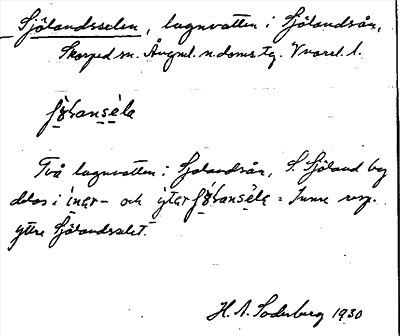 Sjölandsselen, lugnvatten i Sjölandsån,
Skorped sn. Ångml. n. doms. tg. V.norrl. l.
Två lugnvatten i Sjölandsån, S. Sjöland by
delas i och = Inre resp.
yttre Sjölandsselet.
H. A. Söderberg 1930